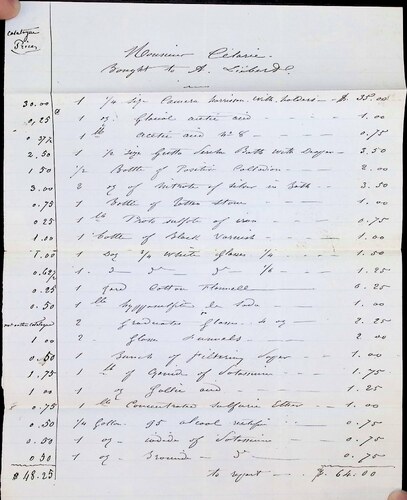 Catalogue
Prices
Monsieur
Bought to A. Liebert
30.00 1 1/4 size Camera harrison with holders $ 35.00
0.25 1 oz Glacial acetic acid 1.00
0.37½ 1 lb Acetic acid No 8 0.75
2.50 1 size Gutta Bath with 3.50
1.50 1/2 Bottle of Positive Collodion 2.00
3.00 2 oz of Nitrate of silver in Bath 3.50
0.75 1 Bottle of Rotten Stone 1.00
0.25 1 lb Proto sulfate of iron 0.75
1.00 1 bottle of Black Varnish 1.00
1.00 1 Doz White Glasses 1/4 1.50
0.62½ 1 1.25
0.25 1 yard Cotton Flannell 0.25
0.50 1 lb hyposulphite de Soda 1.00
not in the catalogue 2 Graduated Glasses 4 oz 2.25
1.00 2 Glass Funnels 2.00
0.50 1 of filtering 1.00
1.75 1 of Cyanide of Potassium 1.75
1.00 1 oz Gallic acid 1.25
0.75 1 lb Concentrated sulfuric Ether 1.00
0.50 1/4 Gallon 95 alcool 0.75
0.50 1 oz iodide of Potassium 0.75
0.50 1 oz 0.75
$ 48.25 to report $ 64.00